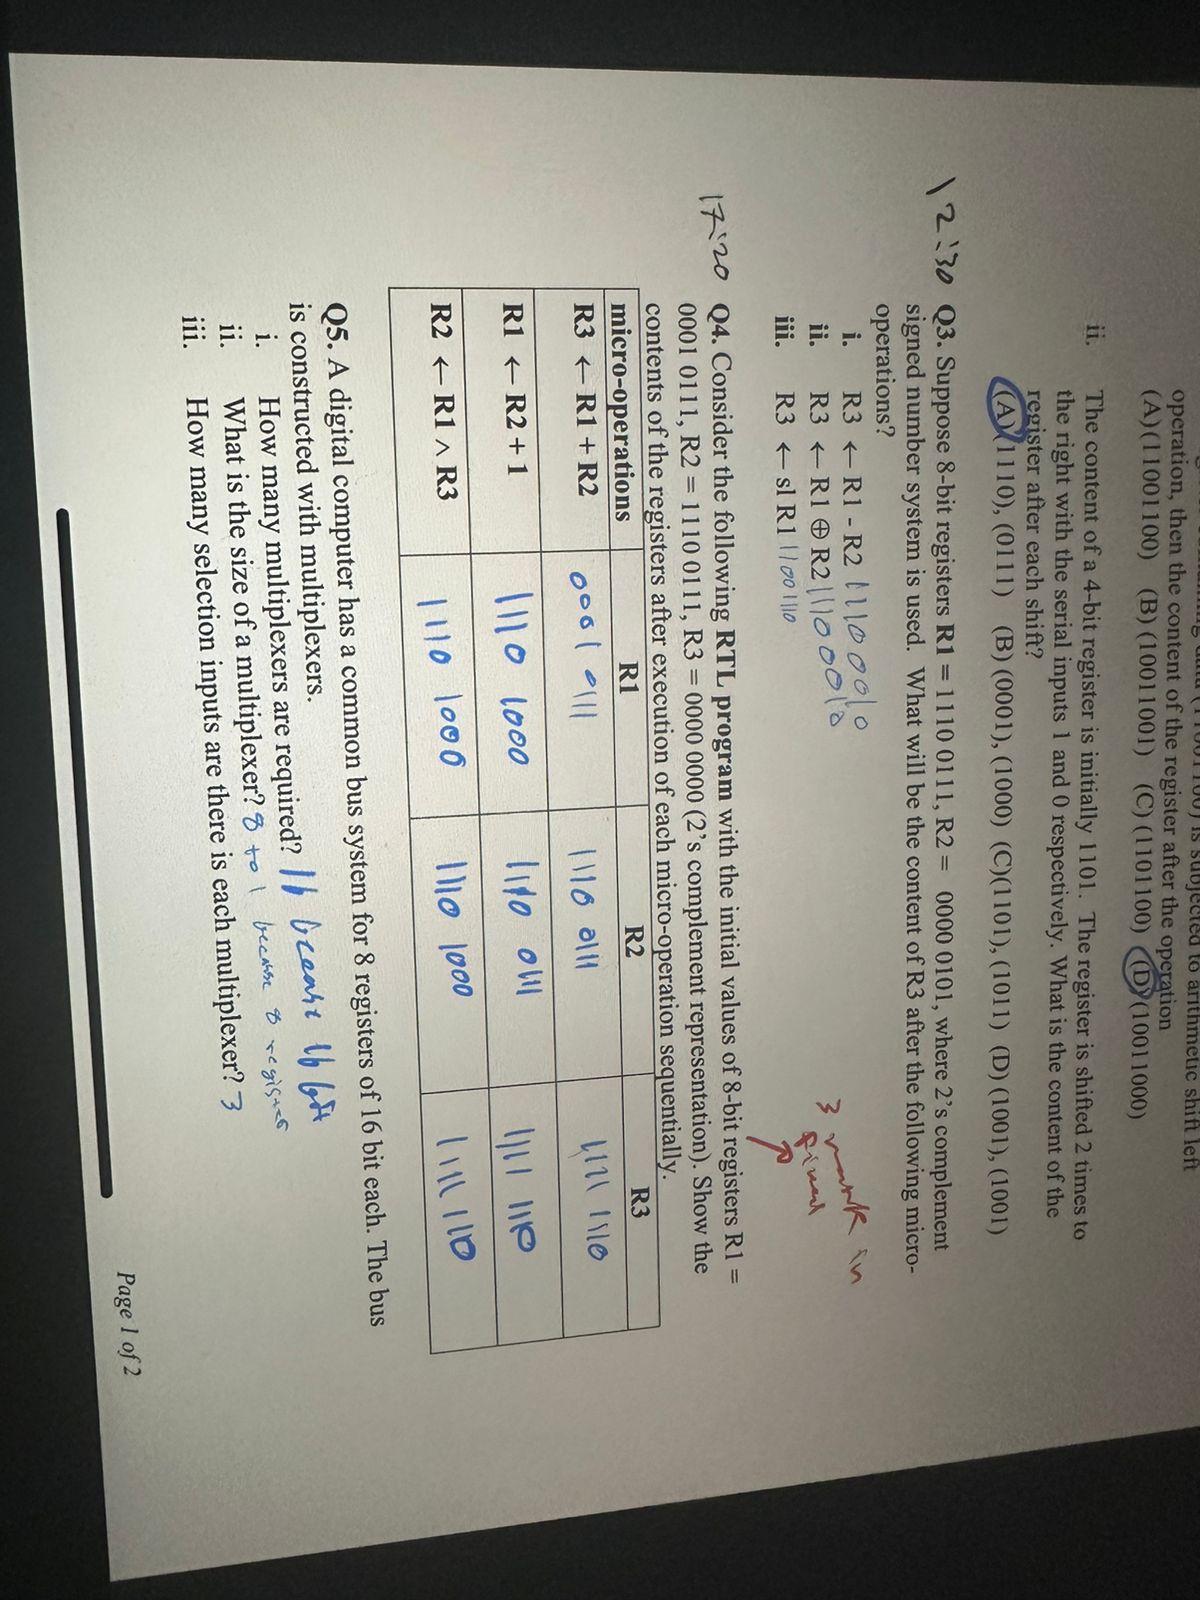 is subjected to arithmetic shift left
operation, then the content of the register after the operation
(A)(11001100) (B) (10011001) (C) (1101100) (D) (10011000)
ii. The content of a 4-bit register is initially 1101. The register is shifted 2 times to
the right with the serial inputs 1 and 0 respectively. What is the content of the
register after each shift?
(A) (1110), (0111) (B) (0001), (1000) (C)(1101), (1011) (D) (1001), (1001)
12:30 Q3. Suppose 8-bit registers R1 = 1110 0111, R2 = 0000 0101, where 2's complement
signed number system is used. What will be the content of R3 after the following micro-
operations?
i. R3 ← R1 - R2 11100010
ii. R3 ← R1 ⊕ R2 11100010
iii. R3 ← sl R1 11001110
3 mark in
final
17:20 Q4. Consider the following RTL program with the initial values of 8-bit registers R1 =
0001 0111, R2 = 1110 0111, R3 = 0000 0000 (2's complement representation). Show the
contents of the registers after execution of each micro-operation sequentially.
micro-operations R1 R2 R3
R3 ← R1 + R2 0001 0111 1110 0111 1111 1110
R1 ← R2 + 1 1110 1000 1110 0111 1111 1110
R2 ← R1 ∧ R3 1110 1000 1110 1000 1111 110
Q5. A digital computer has a common bus system for 8 registers of 16 bit each. The bus
is constructed with multiplexers.
i. How many multiplexers are required? 16 because 16 bit
ii. What is the size of a multiplexer? 8 to 1 because 8 register
iii. How many selection inputs are there is each multiplexer? 3
Page 1 of 2